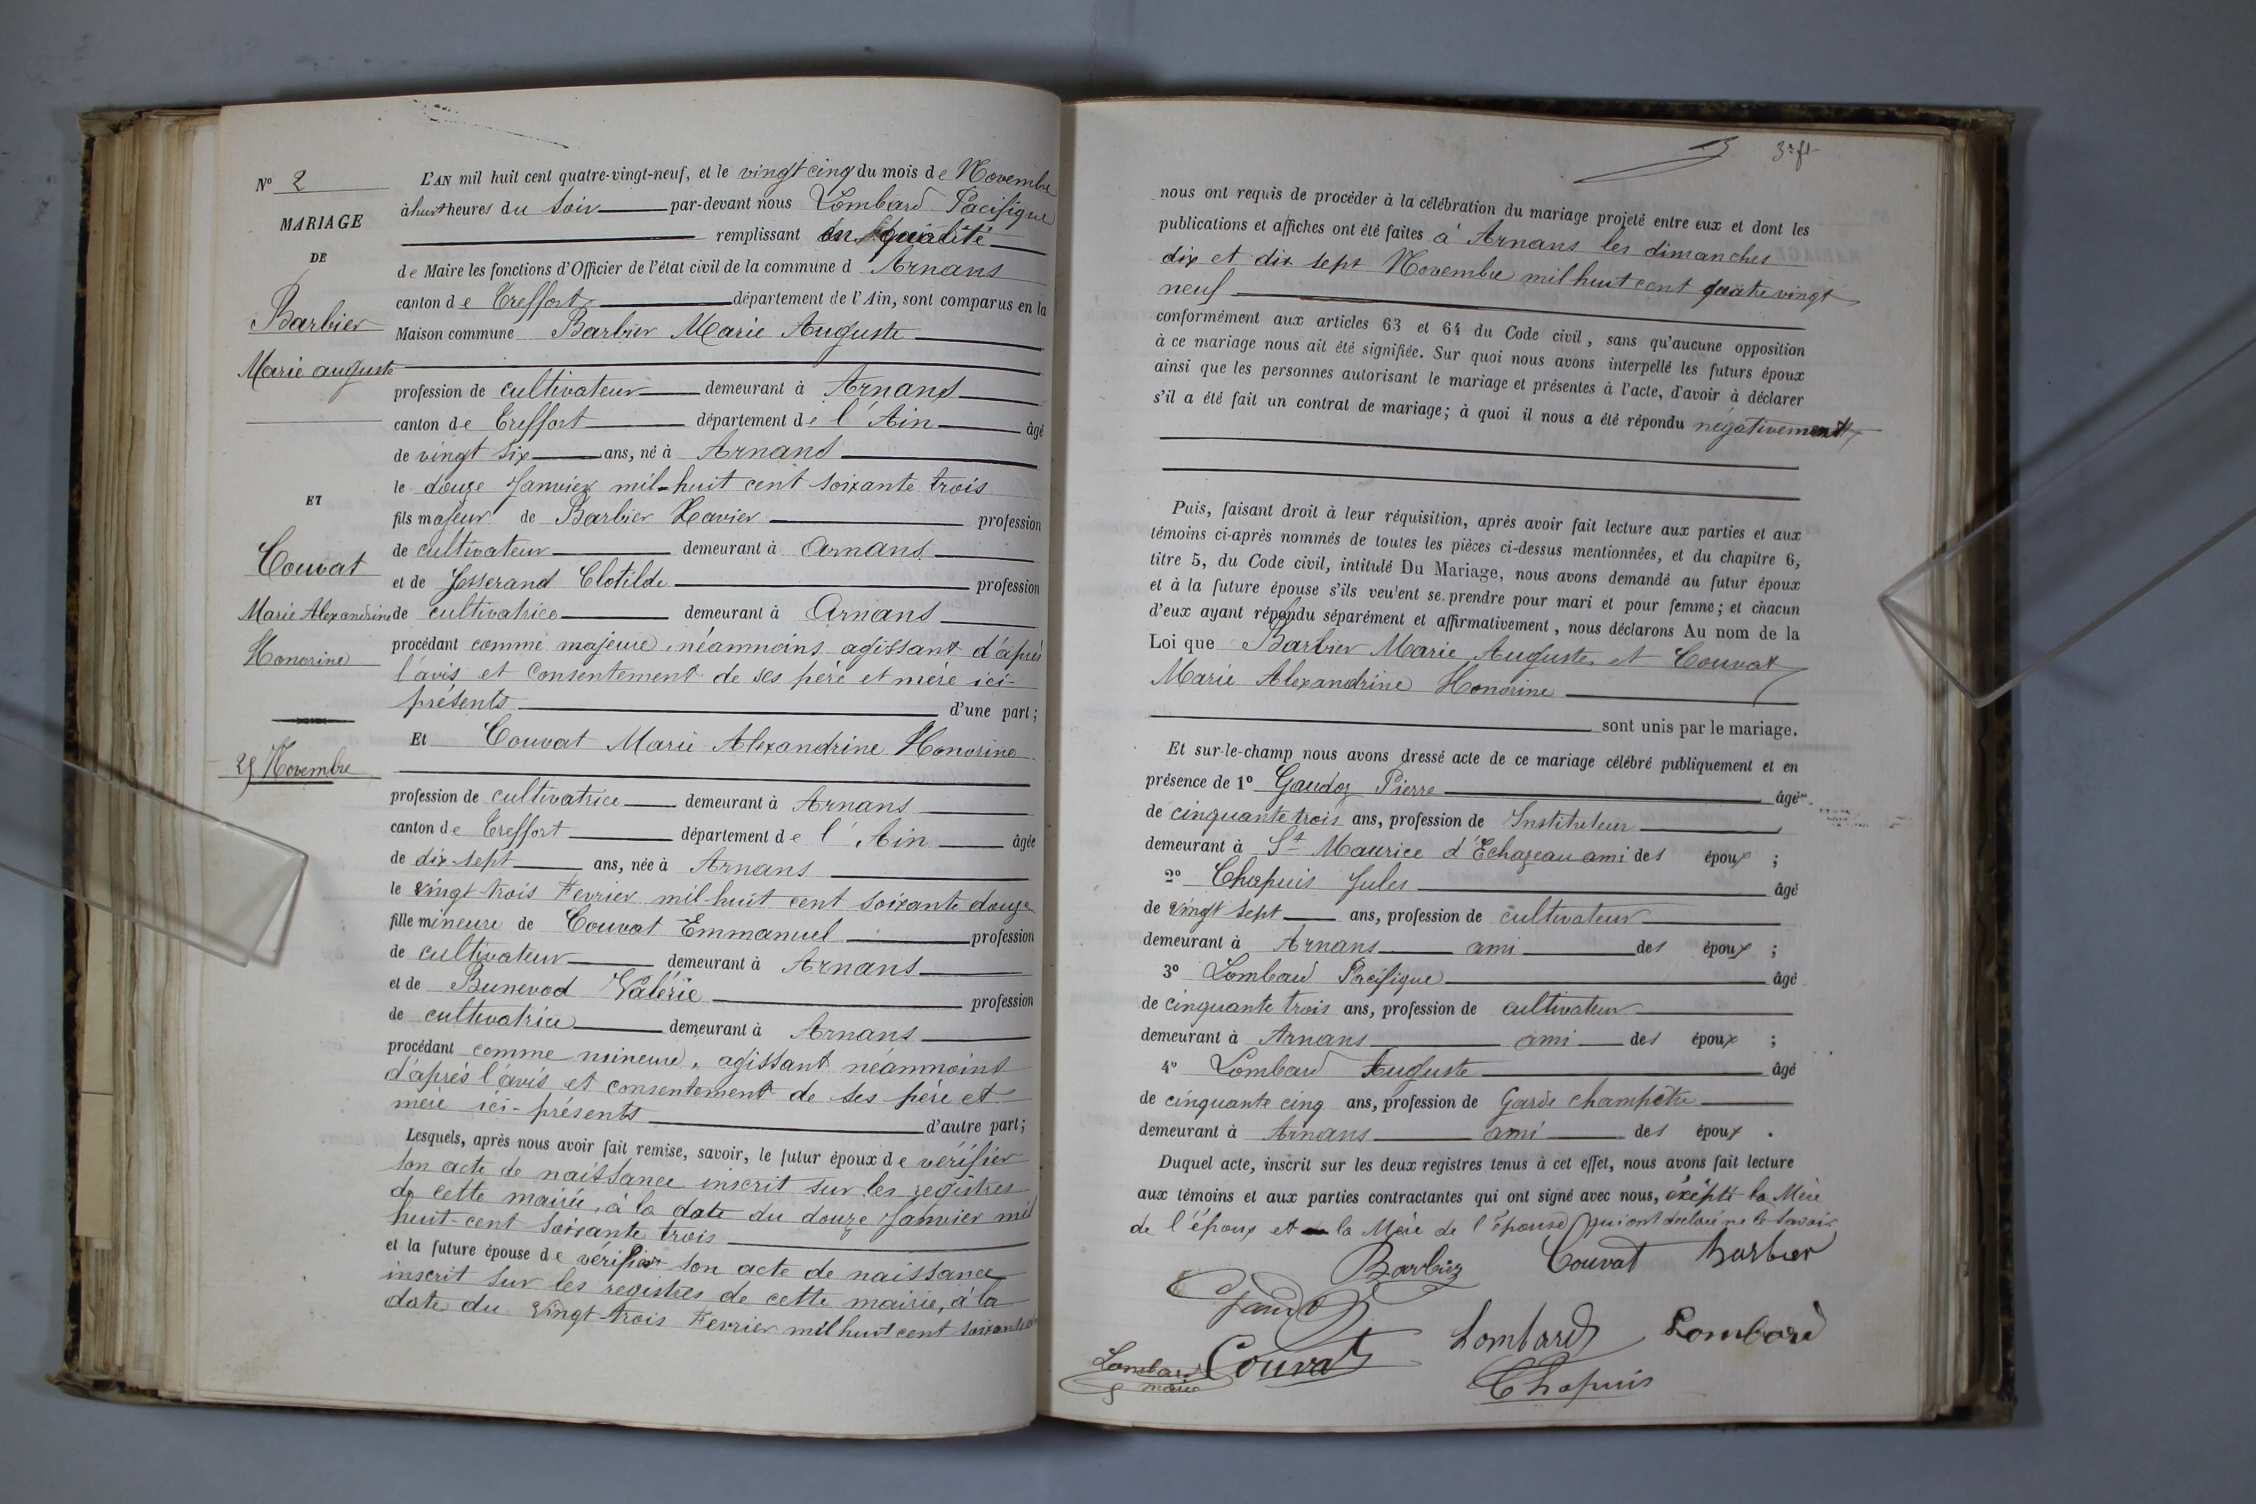 N° 2
MARIAGE
DE
Barbier
Marie auguste
ET
Couvat
Marie Alexandrine
Honorine
25 Novembre
L'AN mil huit cent quatre-vingt-neuf, et le vingt cinq du mois de Novembre
à huit heures du soir par-devant nous Lombard Pacifique
remplissant en qualité
de Maire les fonctions d'Officier de l'état civil de la commune d Arnans
canton de Treffort département de l'Ain, sont comparus en la
Maison commune Barbier Marie Auguste
profession de cultivateur demeurant à Arnans
canton de Treffort département de l'Ain âgé
de vingt six ans, né à Arnans
le douze Janvier mil-huit cent soixante trois
fils majeur de Barbier Xavier profession
de cultivateur demeurant à Arnans
et de Josserand Clotilde profession
de cultivatrice demeurant à Arnans
procédant comme majeure, néammoins agissant d'après
l'avis et consentement de ses père et mère ici-
présents d'une part;
Et Couvat Marie Alexandrine Honorine
profession de cultivatrice demeurant à Arnans
canton de Treffort département de l'Ain âgée
de dix-sept ans, née à Arnans
le vingt trois Fevrier mil-huit cent soixante douze
fille mineure de Couvat Emmanuel profession
de cultivateur demeurant à Arnans
et de Bunevod Valérie profession
de cultivatrice demeurant à Arnans
procédant comme mineure, agissant néammoins
d'après l'avis et consentement de ses père et
mère ici-présents d'autre part;
Lesquels, après nous avoir fait remise, savoir, le futur époux de vérifier
son acte de naissance inscrit sur les registres
de cette mairie, à la date du douze Janvier mil
huit-cent soixante trois
et la future épouse de vérifier son acte de naissance
inscrit sur les registres de cette mairie, à la
date du vingt-trois Fevrier mil huit cent soixante
3
nous ont requis de procéder à la célébration du mariage projeté entre eux et dont les
publications et affiches ont été faites à Arnans les dimanches
dix et dix sept Novembre mil huit cent quatre vingt
neuf
conformément aux articles 63 et 64 du Code civil, sans qu'aucune opposition
à ce mariage nous ait été signifiée. Sur quoi nous avons interpellé les futurs époux
ainsi que les personnes autorisant le mariage et présentes à l'acte, d'avoir à déclarer
s'il a été fait un contrat de mariage; à quoi il nous a été répondu négativement
Puis, faisant droit à leur réquisition, après avoir fait lecture aux parties et aux
témoins ci-après nommés de toutes les pièces ci-dessus mentionnées, et du chapitre 6,
titre 5, du Code civil, intitulé Du Mariage, nous avons demandé au futur époux
et à la future épouse s'ils veulent se prendre pour mari et pour femme; et chacun
d'eux ayant répondu séparément et affirmativement, nous déclarons Au nom de la
Loi que Barbier Marie Auguste et Couvat
Marie Alexandrine Honorine
sont unis par le mariage.
Et sur-le-champ nous avons dressé acte de ce mariage célébré publiquement et en
présence de 1° Gaudoz Pierre âgé
de cinquante trois ans, profession de Instituteur
demeurant à St Maurice d'Echazeau ami des époux ;
2° Chapuis Jules âgé
de vingt sept ans, profession de cultivateur
demeurant à Arnans ami des époux ;
3° Lombard Pacifique âgé
de cinquante trois ans, profession de cultivateur
demeurant à Arnans ami des époux ;
4° Lombard Auguste âgé
de cinquante cinq ans, profession de Garde champêtre
demeurant à Arnans ami des époux .
Duquel acte, inscrit sur les deux registres tenus à cet effet, nous avons fait lecture
aux témoins et aux parties contractantes qui ont signé avec nous, éxépté la Mère
de l'époux et la Mère de l'épouse, qui ont déclaré ne le savoir
Barbier Couvat Barbier
Gaudoz
Lombard Lombard
Lombard Couvat
maire
Chapuis